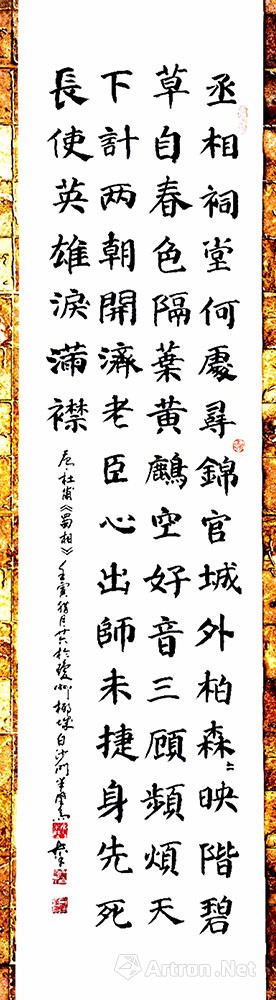 丞相祠堂何處尋錦官城外柏森〻映階碧
草自春色隔葉黃鸝空好音三顧頻煩天
下計两朝開濟老臣心出師未捷身先死
長使英雄淚滿襟
唐杜甫《蜀相》壬寅臘月 於瓊州椰城白沙门
Artron.Net